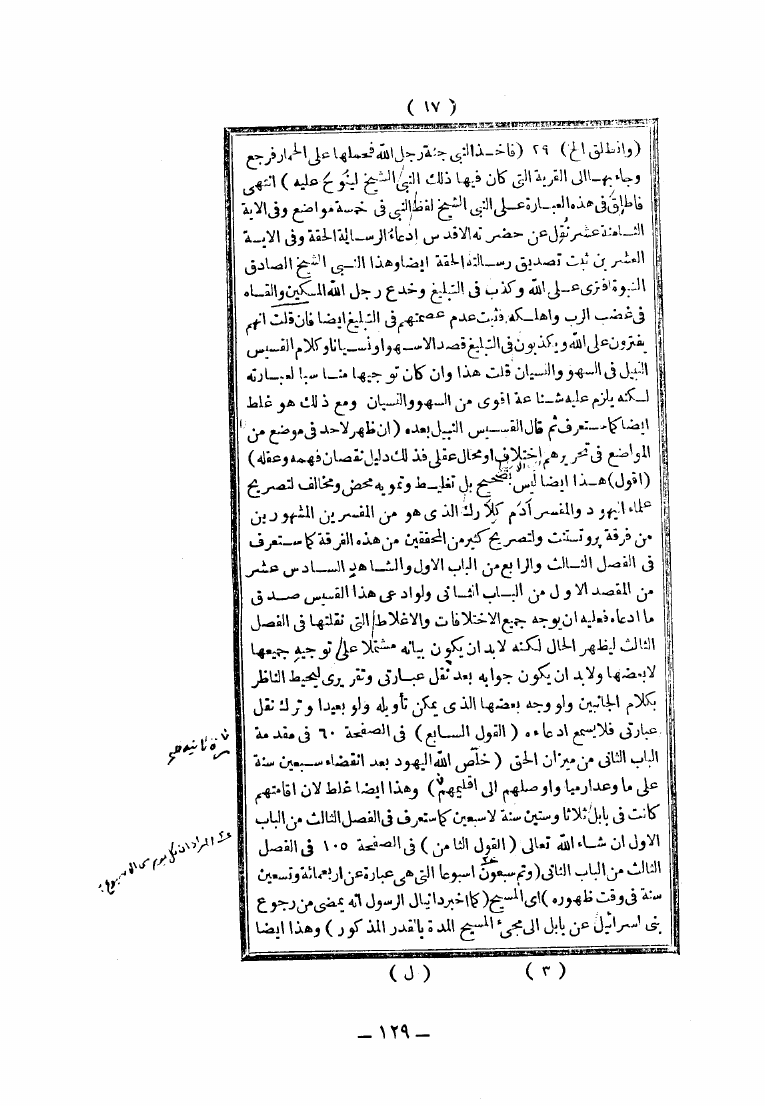 ( ١٧ )
(وانطلق الخ) ٢٩ (فاخذ النبي جنة رجل الله فحملها على الحمار فرجع
وجاء بها الى القرية التى كان فيها ذلك النبى الشيخ لينوح عليه) انتهى
فاطلق فى هذه العبارة على النبى الشيخ لفظ النبى فى خمسة مواضع وفى الاية
الثامنة عشر نقل عن حضرته الاقدس ادعاء الرسالة الحقة وفى الاية
العشرين ثبت تصديق رسالته الحقة ايضا وهذا النبى الشيخ الصادق
النبوة افترى على الله وكذب فى التبليغ وخدع رجل الله المسكين والقاه
فى غضب الرب واهلكه فثبت عدم عصمتهم فى التبليغ ايضا فان قلت انهم
يفترون على الله ويكذبون فى التبليغ قصدا لا سهوا ونسيانا وكلام القسيس
النبيل فى السهو والنسيان قلت هذا وان كان توجيها مناسبا لعبارته
لكنه يلزم عليه شناعة اقوى من السهو والنسيان ومع ذلك هو غلط
ايضا كما ستعرف ثم قال القسيس النبيل بعده (ان ظهر لاحد فى موضع من
المواضع فى تحريرهم اختلاف او محال عقلى فذلك دليل نقصان فهمه وعقله)
(اقول) هذا ايضا ليس بصحيح بل تغليط وتمويه محض ومخالف لتصريح
علماء اليهود والمفسر آدم كلارك الذى هو من المفسرين المشهورين
من فرقة پروتستنت ولتصريح كثير من المحققين من هذه الفرقة كما ستعرف
فى الفصل الثالث والرابع من الباب الاول والشاهد السادس عشر
من المقصد الاول من الباب الثانى ولو ادعى هذا القسيس صدق
ما ادعاه فعليه ان يوجه جميع الاختلافات والاغلاط التى نقلتها فى الفصل
الثالث ليظهر الحال لكنه لابد ان يكون بيانه مشتملا على توجيه جميعها
لا بعضها ولابد ان يكون جوابه بعد نقل عبارتى وتقريرى ليحيط الناظر
بكلام الجانبين ولو وجه بعضها الذى يمكن تأويله ولو بعيدا وترك نقل
عبارتى فلا يسمع ادعاءه (القول السابع) فى الصفحة ٦٠ فى مقدمة
الباب الثانى من ميزان الحق (خلّص الله اليهود بعد انقضاء سبعين سنة
على ما وعد ارميا واوصلهم الى اقليمهم) وهذا ايضا غلط لان اقامتهم
كانت فى بابل ثلاثا وستين سنة لاسبعين كما ستعرف فى الفصل الثالث من الباب
الاول ان شاء الله تعالى (القول الثامن) فى الصفحة ١٠٥ فى الفصل
الثالث من الباب الثانى (وتم سبعون اسبوعا التى هى عبارة عن اربعمائة وتسعين
سنة فى وقت ظهوره) اى المسيح (كما اخبر دانيال الرسول انه يمضى من رجوع
بنى اسرائيل عن بابل الى مجئ المسيح المدة بالقدر المذكور) وهذا ايضا
( ٣ ) ( ل )
— ١٢٩ —